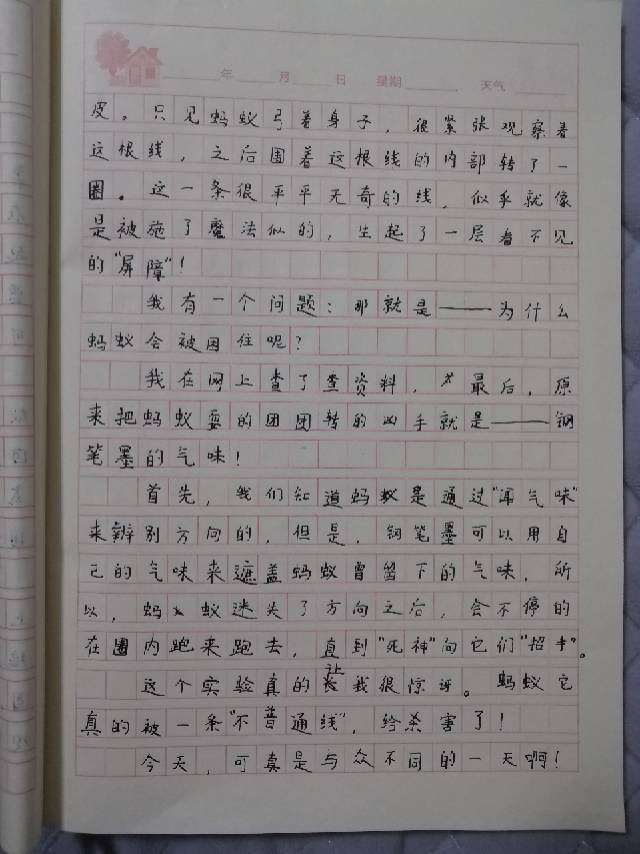 年 月 日 星期 天气
皮。只见蚂蚁弓着身子，很紧张观察着
这根线，之后围着这根线的内部转了一
圈。这一条很平平无奇的线，似乎就像
是被施了魔法似的，生起了一层看不见
的"屏障"！
我有一个问题：那就是——为什么
蚂蚁会被困住呢？
我在网上查了查资料，最后，原
来把蚂蚁耍的团团转的凶手就是——钢
笔墨的气味！
首先，我们知道蚂蚁是通过"闻气味"
来辨别方向的，但是，钢笔墨可以用自
己的气味来遮盖蚂蚁曾留下的气味，所
以，蚂蚁迷失了方向之后，会不停的
在圈内跑来跑去，直到"死神"向它们"招手"。
这个实验真的让我很惊讶。蚂蚁它
真的被一条"不普通线"，给杀害了！
今天，可真是与众不同的一天啊！